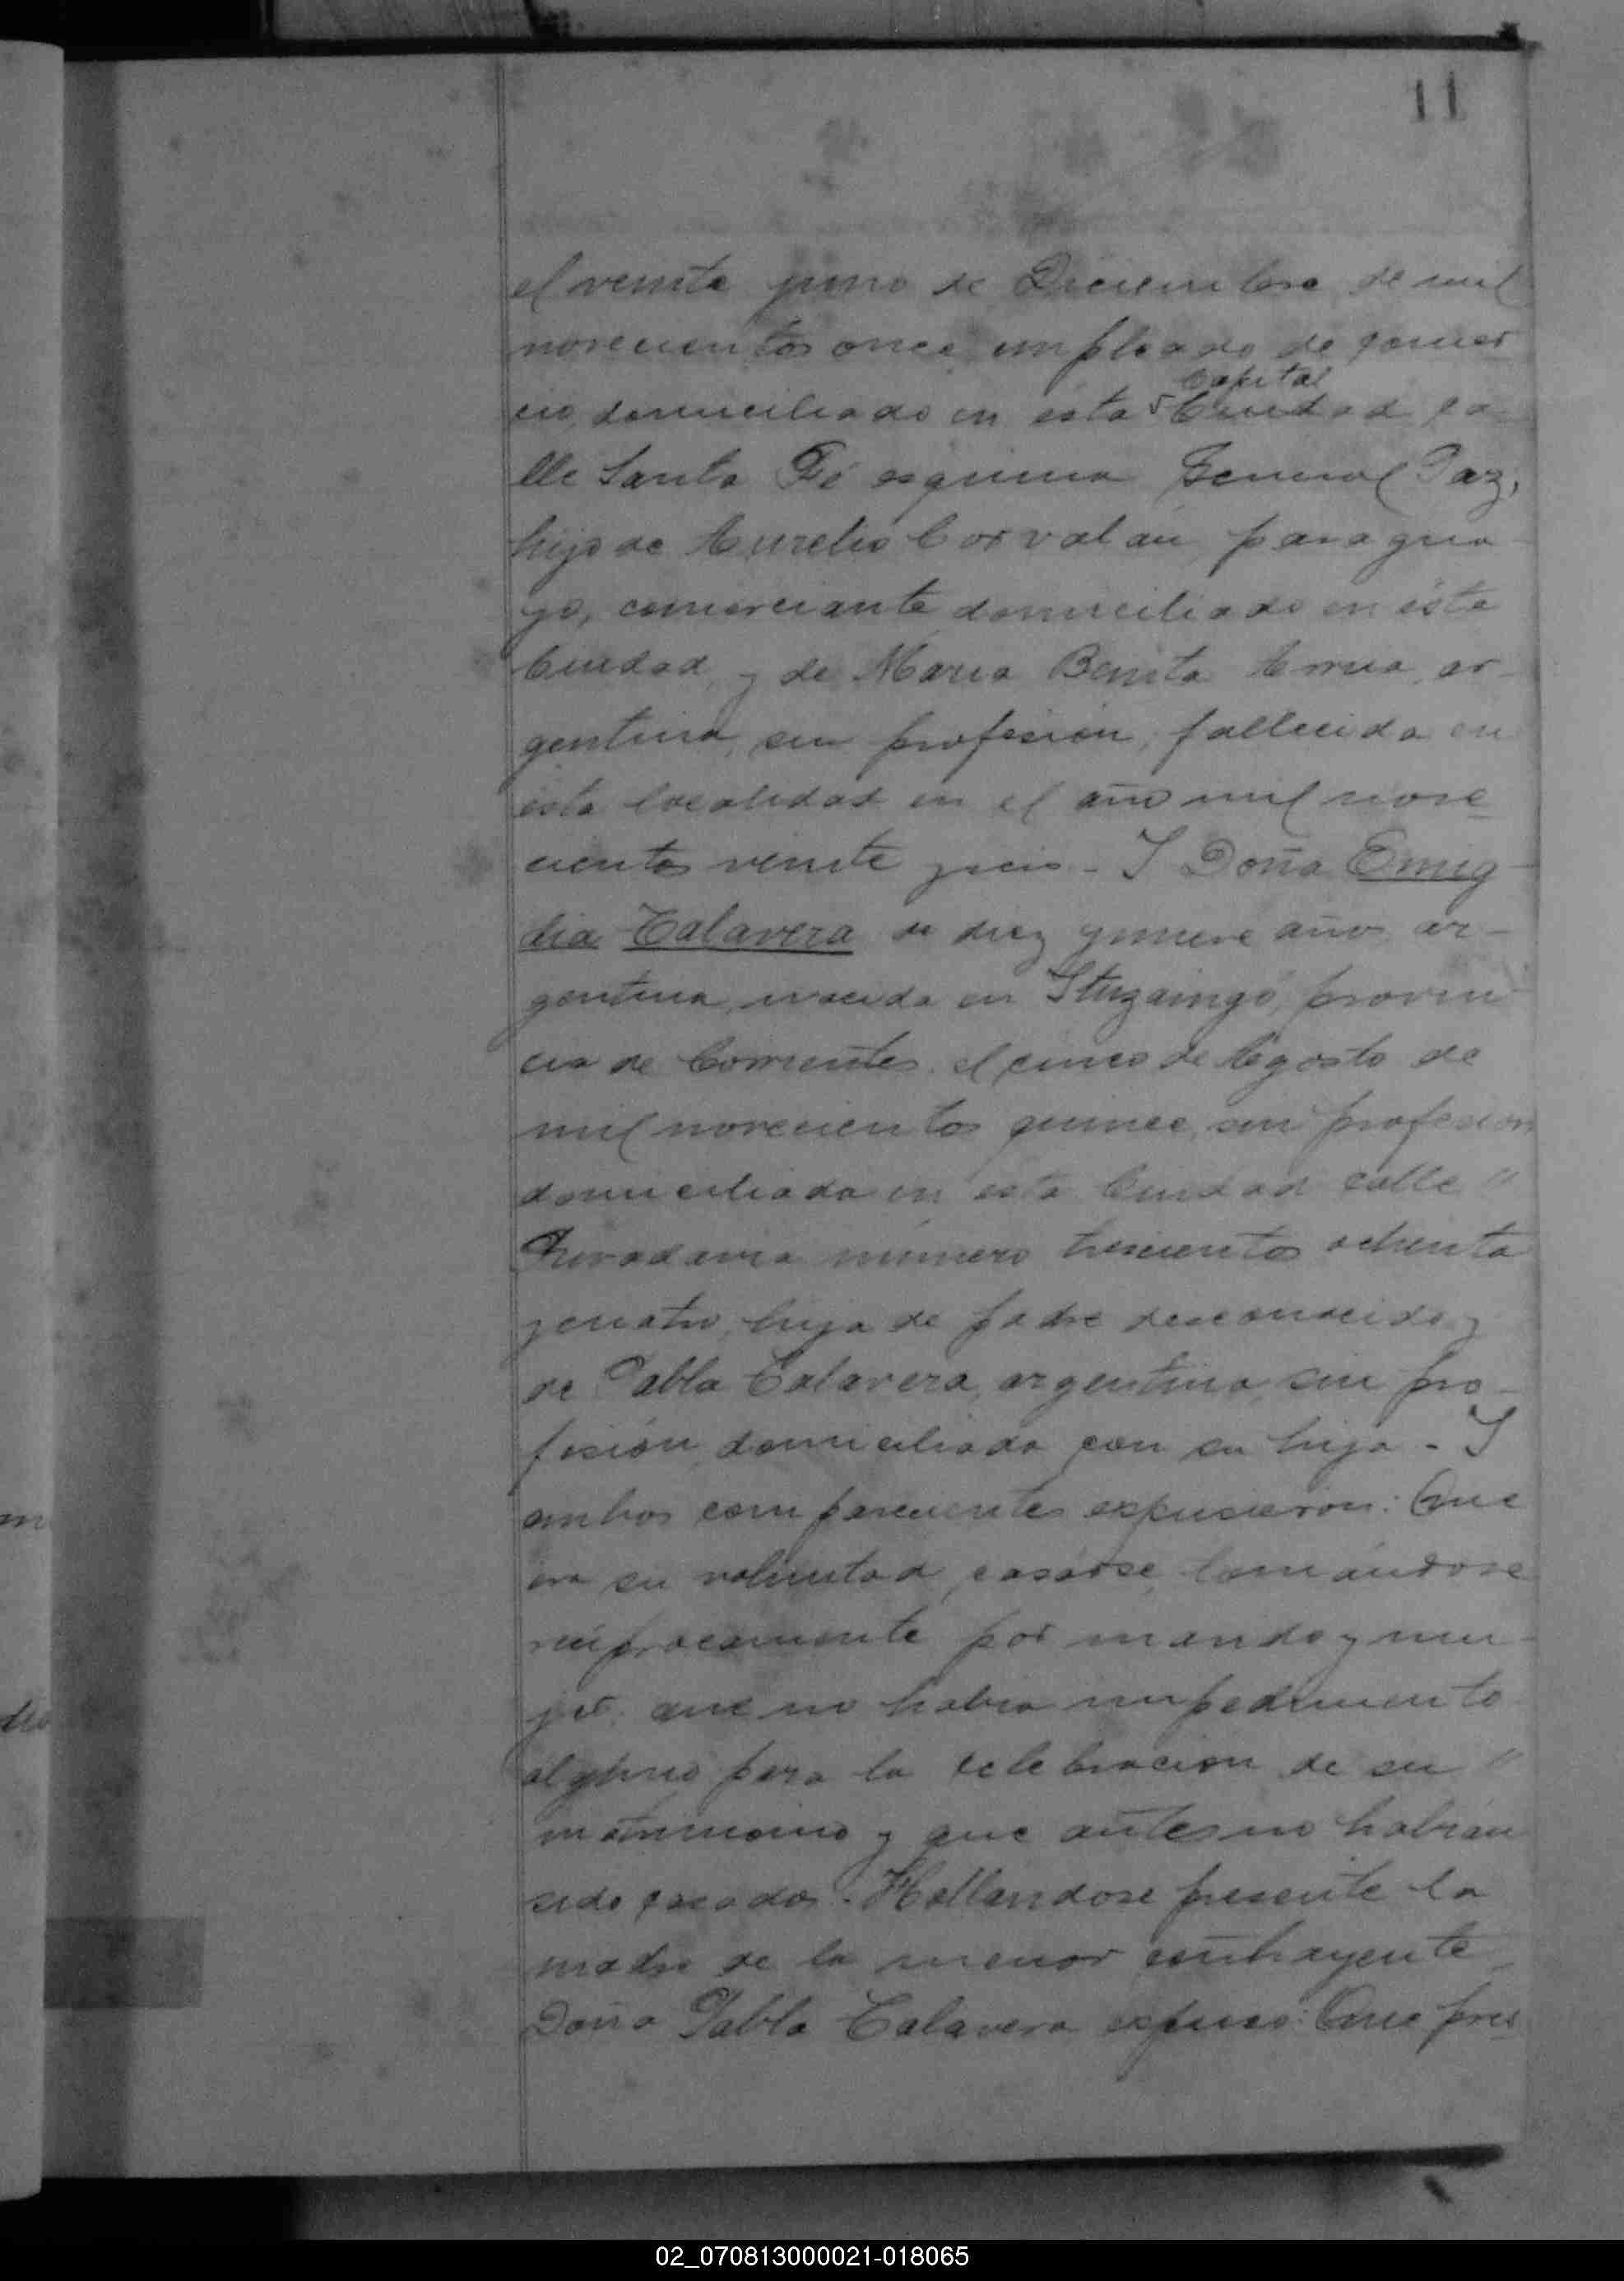 11
el veinte y uno de Diciembre de mil
novecientos once, empleado de comer
cio, domiciliado en esta Capital Ciudad ca
lle Santa Fé esquina General Paz,
hijo de Aurelio Corvalán, paragua
yo, comerciante domiciliado en ésta
Ciudad, y de Maria Benita, ar-
gentina, sin profesión, fallecida en
esta localidad en el año mil nove
cientos veinte y seis - Y Doña Emig-
dia Talavera de diez y nueve años, ar-
gentina, nacida en Ituzaingó, provin-
cia de Corrientes, el cinco de Agosto de
mil novecientos quince, sin profesión
domiciliada en esta Ciudad calle "
Rivadavia número trescientos ochenta
y cuatro, hija de padre desconocido y
de Pabla Talavera, argentina, sin pro-
fesión, domiciliada con su hija - Y
ambos comparecientes expusieron: Que
era su voluntad casarse, tomándose
recíprocamente por marido y mu-
jer, que no habia impedimento
alguno para la celebración de su "
matrimonio y que antes no habían
sido casados. Hallandose presente la
madre de la menor contrayente
Doña Pabla Talavera expuso: Que pres
m
02_070813000021-018065